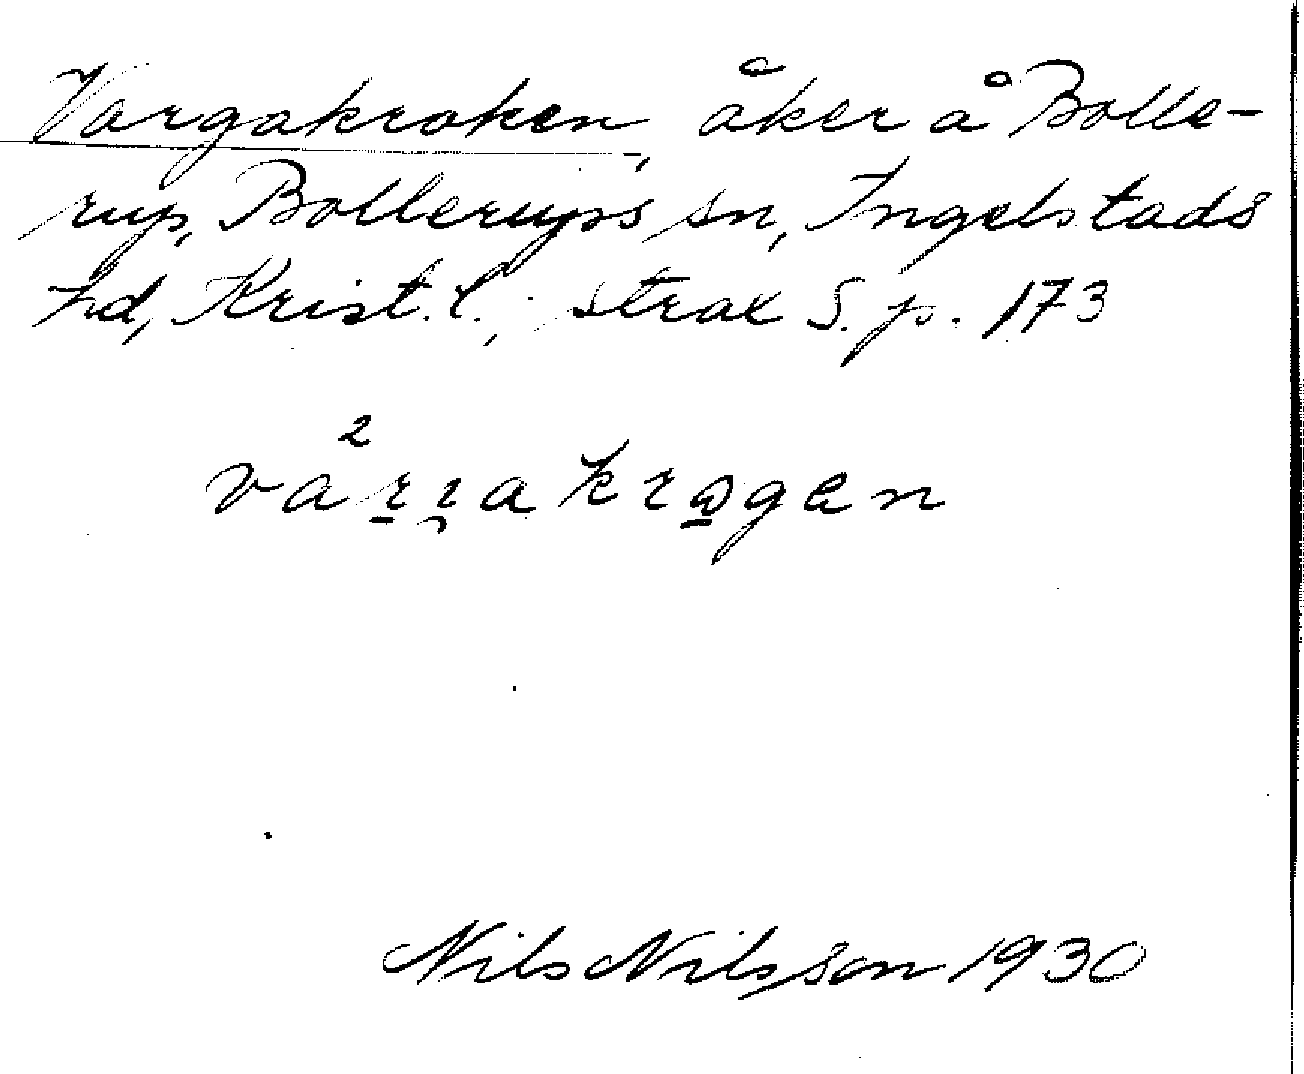 Vargakroken, åker å Bolle-
rup, Bollerups sn, Ingelstads
hd, Krist. l., strax S. p. 173
2
vår̠ɪ̯akro̠gen
Nils Nilsson 1930